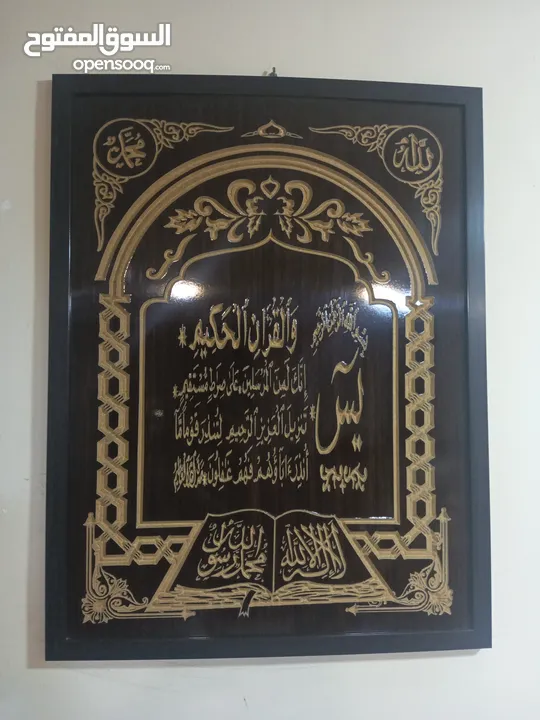 السوق المفتوح
opensooq.com
الله
محمد
يس
وَالْقُرْآنِ الْحَكِيمِ *
إِنَّكَ لَمِنَ الْمُرْسَلِينَ * عَلَى صِرَاطٍ مُسْتَقِيمٍ *
تَنْزِيلَ الْعَزِيزِ الرَّحِيمِ لِتُنْذِرَ قَوْمًا مَا
أُنْذِرَ ءَابَاؤُهُمْ فَهُمْ غَافِلُونَ *
لا إله إلا الله
محمد رسول الله